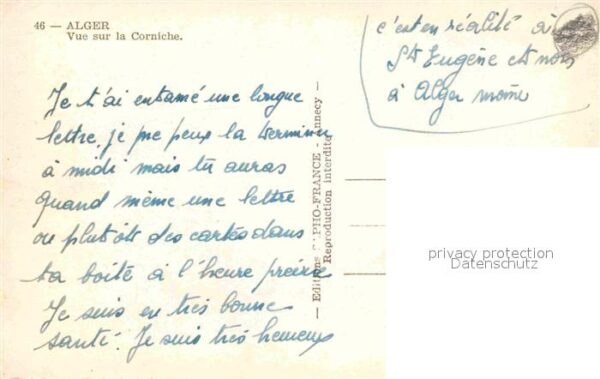 46 — ALGER
Vue sur la Corniche.
c'est en réalité à
St Eugène et non
à Alger même
Je t'ai entamé une longue
lettre, je ne peux la terminer
à midi mais tu auras
quand même une lettre
ou plutôt des cartes dans
ta boîte à l'heure précise
Je suis en très bonne
santé. Je suis très heureux
— Editions SAPHO-FRANCE - Annecy —
Reproduction interdite
privacy protection
Datenschutz